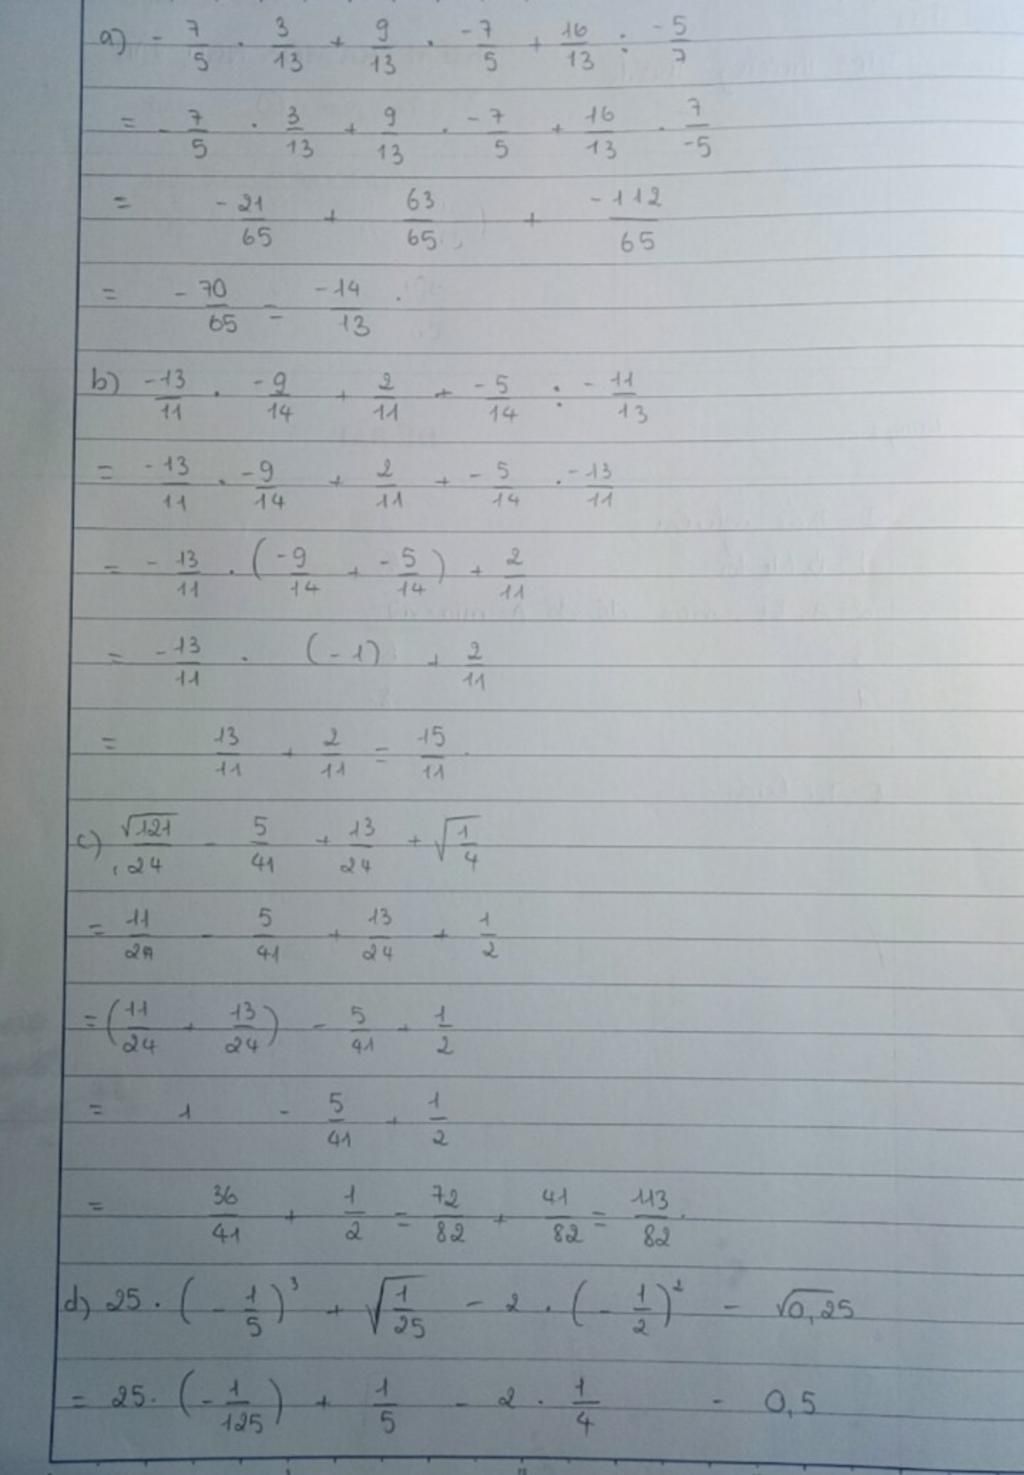 a) - 7/5 . 3/13 + 9/13 . -7/5 + 16/13 : -5/7
= - 7/5 . 3/13 + 9/13 . -7/5 + 16/13 . 7/-5
= -21/65 + 63/65 + -112/65
= -70/65 = -14/13 .
b) -13/11 . -9/14 + 2/11 + -5/14 : -11/13
= -13/11 . -9/14 + 2/11 + -5/14 . -13/11
= -13/11 . (-9/14 + -5/14) + 2/11
= -13/11 . (-1) + 2/11
= 13/11 + 2/11 = 15/11 .
c) √121/24 - 5/41 + 13/24 + √(1/4)
= 11/24 - 5/41 + 13/24 + 1/2
= (11/24 + 13/24) - 5/41 + 1/2
= 1 - 5/41 + 1/2
= 36/41 + 1/2 = 72/82 + 41/82 = 113/82 .
d) 25 . (-1/5)³ + √(1/25) - 2 . (-1/2)² - √0,25
= 25 . (-1/125) + 1/5 - 2 . 1/4 - 0,5